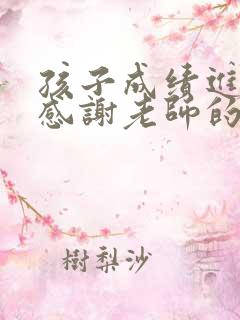 孩子成绩進
感謝老師的
樹梨沙